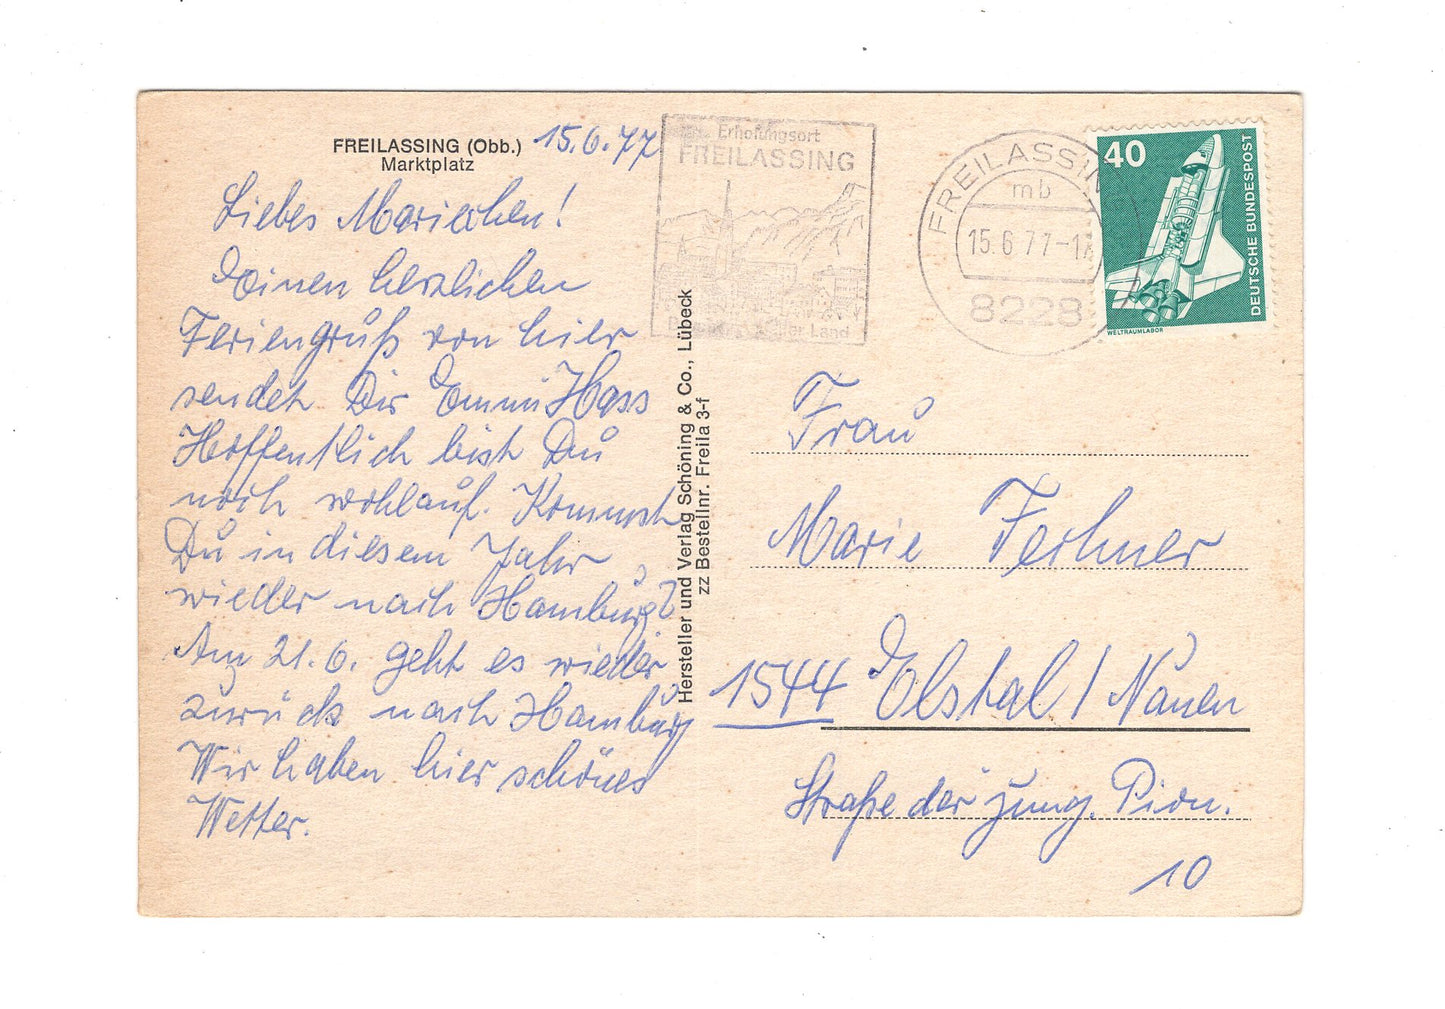 FREILASSING (Obb.)
Marktplatz
15.6.77
Liebes Mariechen!
Einen herzlichen
Feriengruß von hier
sendet Dir Emmi Hass
Hoffentlich bist Du
noch wohlauf. Kommst
Du in diesem Jahr
wieder nach Hamburg?
Am 21.6. geht es wieder
zurück nach Hamburg
Wir haben hier schönes
Wetter.
Hersteller und Verlag Schöning & Co., Lübeck
zz Bestellnr. Freila 3-f
Erholungsort
FREILASSING
Land
FREILASSING
mb
15.6.77-18
8228
40
DEUTSCHE BUNDESPOST
WELTRAUMLABOR
Frau
Marie Fechner
1544 Elstal / Nauen
Straße der jung. Pion.
10